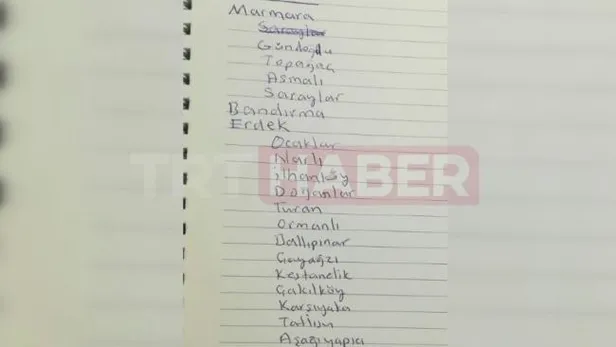 Marmara
Saraylar
Gündoğdu
Topağaç
Asmalı
Saraylar
Bandırma
Erdek
Ocaklar
Narlı
ilhanköy
Doğanlar
Turan
Ormanlı
Ballıpınar
Çayağzı
Kestanelik
Çakılköy
Karşıyaka
Tatlısu
Aşağıyapıcı
TRT HABER